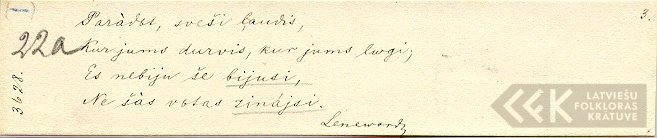 1
3.
Paràdat, sveši ļaudis,
22a
Kur jums durvis, kur jums logi;
Es nebiju še bijusi,
Ne šàs votas zinājsi.
3628.
Lenewardę
LATVIEŠU
FOLKLORAS
KRĀTUVE